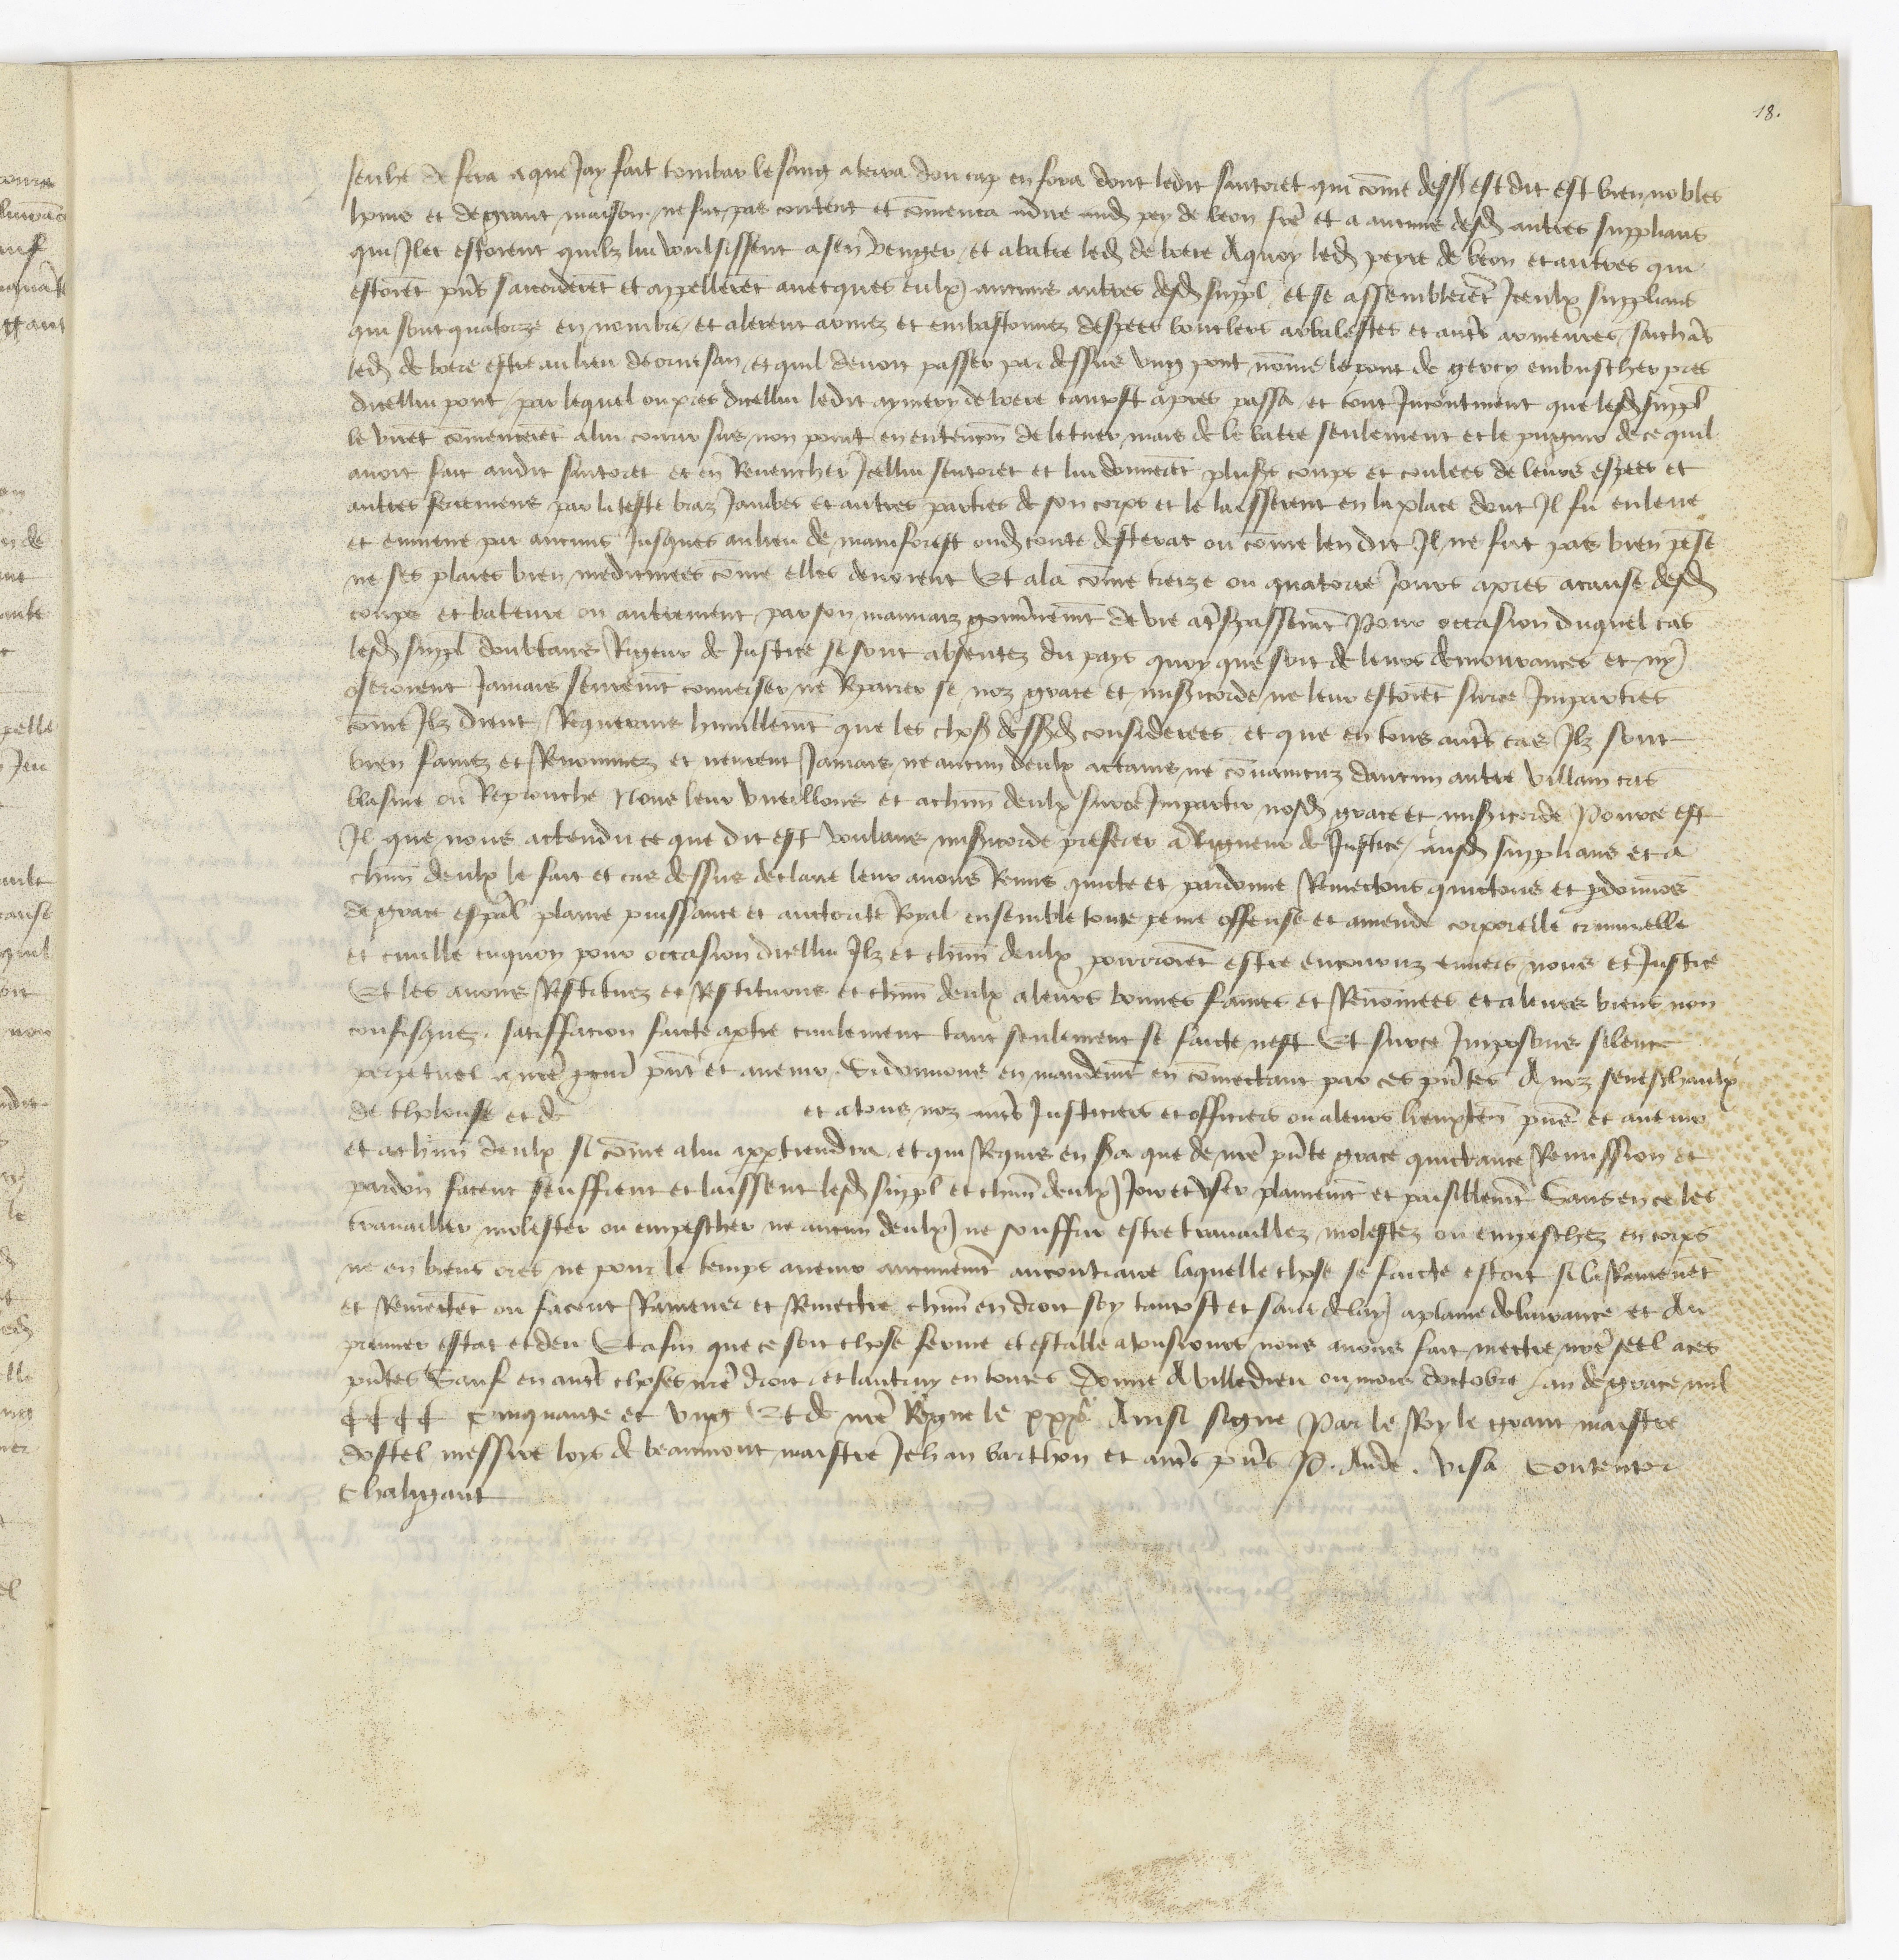 18.
senhe de fera a que Jay fait tombar le sang a terra dou cap en fora dont ledit santoret qui cōme dess9 est dit est bien nobles
home et de grant maison ne fut pas content et cōmenca a dire aud pey de beon frē et a aucuns desd autres supplians
qui Ilec estoient quilz lui voulsissent a sen venger et a batre led de bere A quoy led peyre de beon et autres qui
estoiēt pn̄s sacorderēt et appellerēt avecques eulx aucuns autres desd suppl et se assemblerēt Iceulx supplians
qui sont quatorze en nombre et alerent armez et embastonnez despees boucliers arbalestes et aut̄s armeures sachās
led de bere estre au lieu de ornesan et quil devoit passer par dessus ung pont nōme le pont de gercy embuscher pres
dicellui pont par lequel ou pres dicellui ledit aymery de bere tantost apres passa et tout Incontinent que lesd suppl
le virēt cōmencerēt a lui courir sus non point en entencōn de le tuer mais de le batre seulement et le pugnir de ce quil
avoit fait audit santoret et en Revencher Icellui sentoret et lui donnerēt plus9s coups et coulees de leurs espees et
autres ferremens par la teste braz Jambes et autres parties de son corps et le laisserent en la place dont Il fu enleve
et enmene par aucuns Jusques au lieu de maniforest oud conte desterac ou cōme len dit Il ne fut pas bien pēse
ne ses plaies bien medicinees cōme elles devoient Et a la cōme treize ou quatorze Jours apres a cause desd
coups et bateure ou autrement par son mauvaiz gouv̄nemt de vie a t̄spassemt Pour occasion duquel cas
lesd suppl doubtans Rigeur de Justice se sont absentez du pays quoy que soit de leurs demourances et ny
oseroient Jamais seuremt converser ne Repairer se noz grace et mis9icorde ne leur estoiēt sur ce Imparties
cōme Ilz dient Requerans humblemt que les chos9 dess9d considerees et que en tous aut̄s cas Ilz sont
bien famez et Renommez et neurent Jamais ne aucun deulx actains ne cōvaincuz daucun autre villain cas
blasme ou Reprouche Nous leur vueillons et a chūn deulx sur ce Impartir nosd grace et mis9icorde Pource est
Il que nous actendu ce que dit est voulans mis9icorde preferer a Rigueur de Justice ausd supplians et a
chūn deulx le fait et cas dessus declare leur avons Remis quicte et pardonne Remectons quictons et pdonnōs
de grace esp̄al plaine puissance et auctorite Royal ensemble toute peine offense et amende corporelle criminelle
et civille en quoy pour occasion dicellui Ilz et chūn deulx pourroiēt estre encouruz envers nous et Justice
Et les avons Restituez et Restituons et chūn deulx a leurs bonnes fames et Renōmees et a leurs biens non
confisquez satisfacion faicte a ptie civilement tant seulement se faicte nest Et sur ce Imposons silence
perpetuel a nr̄e procur pn̄t et avenir Si donnons en mandemt en cōmectant par ces pn̄tes A noz seneschaulx
de tholouse et de et a tous noz aut̄s Justiciers et officiers ou a leurs lieuxten̄ pn̄s et avenir
et a chūn deulx si cōme a lui appertiendra et qui Requis en sa que de nr̄e pn̄te grace quictance Remission et
pardon facent seuffrent et laissent lesd suppl et chūn deulx Joir et user plainemt et paisiblemt Sans en ce les
travailler molester ou empescher ne aucun deulx ne souffrir estre travaillez molestez ou empeschez en corps
ne en biens ores ne pour le temps avenir aucunemt au contraire laquelle chose se faicte estoit si la Ramenēt
et Remectēt ou facent Ramener et Remectre chūn en droit soy tantost et sans delay a plaine delivrance et Au
premier estat et deu Et afin que ce soit chose ferme et estable a tousiours nous avons fait mectre nr̄e seel a ces
pn̄tes Sauf en aut̄s choses nr̄e droit et lautruy en toutes Donne A villedieu ou mois doctobre lan de grace mil
CCCC cinquante et ung Et de nr̄e Regne le xxxe Ainsi signe Par le Roy le grant maistre
dostel messire loys de beaumont maistre Jehan barthon et aut̄s pn̄s P. Aude. visa Contentor
Chaligaut